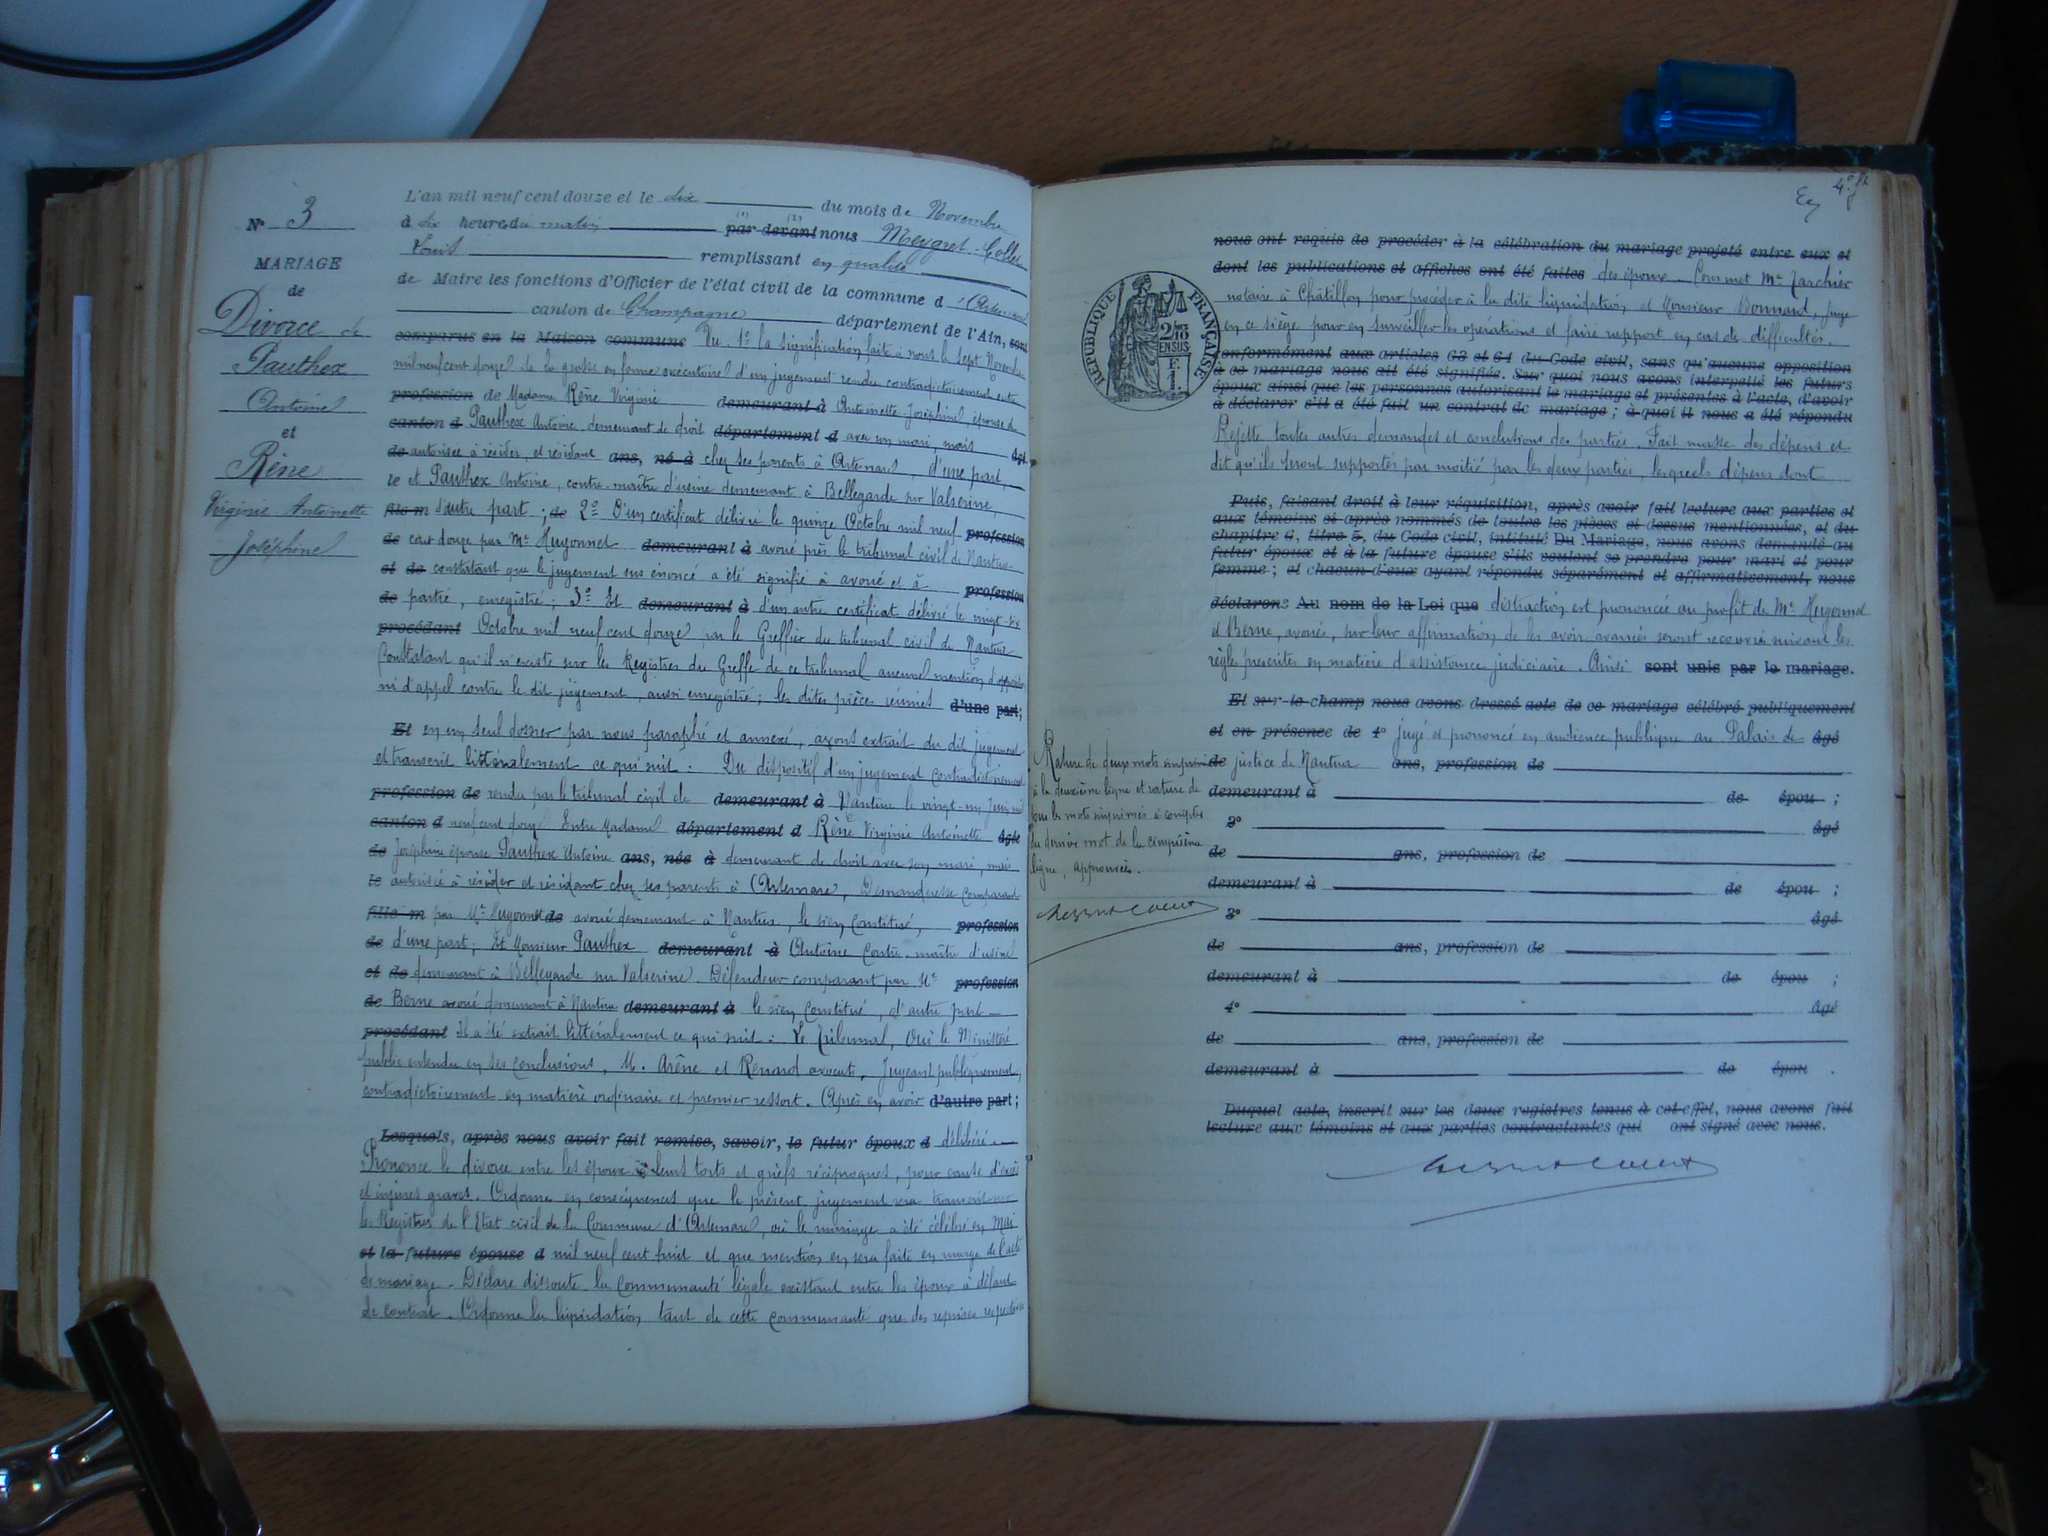 N° 3
MARIAGE
de
Divorce de
Pauthex
Antoine
et
Rène
Virginie Antoinette
Joséphine
L'an mil neuf cent douze et le dix du mois de Novembre
à dix heures du matin (1) par devant (2) nous Meygret-Collet
Louis remplissant en qualité
de Maire les fonctions d'Officier de l'état civil de la commune d'Artemare
canton de Champagne département de l'Ain, sont
comparus en la Maison commune Vu 1° la signification faite à nous le sept Novembre
mil neuf cent douze de la grosse en forme exécutoire d'un jugement rendu contradictoirement entre
profession de Madame Rène Virginie demeurant à Antoinette Joséphine épouse de
canton d Pauthex Antoine demeurant de droit département d avec son mari, mais âgé
de autorisée à résider, et résidant ans, né à chez ses parents à Artemare, d'une part,
le et Pauthex Antoine, contre-maître d'usine demeurant à Bellegarde sur Valserine,
fils m d'autre part ; de 2° D'un certificat délivré le quinze Octobre mil neuf profession
de cent douze par Me Hugonnet demeurant à avoué près le tribunal civil de Nantua
et de constatant que le jugement sus énoncé a été signifié à avoué et à profession
de partie, enregistré ; 3° Et demeurant à d'un autre certificat délivré le vingt-six
procédant Octobre mil neuf cent douze par le Greffier du tribunal civil de Nantua
Constatant qu'il n'existe sur les Registres du Greffe de ce tribunal aucune mention d'opposition
ni d'appel contre le dit jugement, aussi enregistré ; les dites pièces réunies d'une part;
Et en un seul dossier par nous paraphé et annexé, avons extrait du dit jugement
et transcrit littéralement ce qui suit : Du dispositif d'un jugement contradictoirement
profession de rendu par le tribunal civil de demeurant à Nantua le vingt-un Juin mil
canton d neuf cent douze Entre Madame département d Rène Virginie Antoinette âgée
de Joséphine épouse Pauthex Antoine ans, née à demeurant de droit avec son mari, mais
le autorisée à résider et résidant chez ses parents à Artemare, Demanderesse comparant
fille m par Me Hugonnet de avoué demeurant à Nantua, le sien constitué, profession
de d'une part ; Et Monsieur Pauthex demeurant à Antoine Contre-maître d'usine
et de demeurant à Bellegarde sur Valserine. Défendeur comparant par Me profession
de Berne avoué demeurant à Nantua demeurant à le sien constitué, d'autre part
procédant Il a été extrait littéralement ce qui suit : Le Tribunal, Ouï le Ministère
public entendu en ses conclusions, M. Arène et Renard avocats, Jugeant publiquement,
contradictoirement en matière ordinaire et premier ressort. Après en avoir d'autre part;
Lesquels, après nous avoir fait remise, savoir, le futur époux d délibéré.
Prononce le divorce entre les époux à leurs torts et griefs réciproques, pour cause d'excès
et injures graves. Ordonne en conséquence que le présent jugement sera transcrit sur
les Registres de l'Etat civil de la Commune d'Artemare, où le mariage a été célébré en Mai
et la future épouse d mil neuf cent huit et que mention en sera faite en marge de l'acte
de mariage. Déclare dissoute la Communauté légale existant entre les époux à défaut
de contrat. Ordonne la liquidation tant de cette communauté que des reprises respectives
nous ont requis de procéder à la célébration du mariage projeté entre eux et
dont les publications et affiches ont été faites des époux. Commet Me Tarchier
notaire à Châtillon pour procéder à la dite liquidation et Monsieur Bonnard, juge
en ce siège pour en surveiller les opérations et faire rapport en cas de difficultés.
conformément aux articles 63 et 64 du Code civil, sans qu'aucune opposition
à ce mariage nous ait été signifiée. Sur quoi nous avons interpellé les futurs
époux ainsi que les personnes autorisant le mariage et présentes à l'acte, d'avoir
à déclarer s'il a été fait un contrat de mariage ; à quoi il nous a été répondu
Rejette toutes autres demandes et conclusions des parties. Fait masse des dépens et
dit qu'ils seront supportés par moitié par les deux parties, lesquels dépens dont
Puis, faisant droit à leur réquisition, après avoir fait lecture aux parties et
aux témoins ci-après nommés de toutes les pièces ci-dessus mentionnées, et du
chapitre 6, titre 5, du Code civil, intitulé Du Mariage, nous avons demandé au
futur époux et à la future épouse s'ils veulent se prendre pour mari et pour
femme ; et chacun d'eux ayant répondu séparément et affirmativement, nous
déclarons Au nom de la Loi que distraction est prononcée au profit de Me Hugonnet
et Berne, avoués, sur leur affirmation de les avoir avancés seront recouvrés suivant les
règles prescrites en matière d'assistance judiciaire. Ainsi sont unis par le mariage.
Et sur-le-champ nous avons dressé acte de ce mariage célébré publiquement
et en présence de 1° jugé et prononcé en audience publique au Palais de âgé
de justice de Nantua ans, profession de
demeurant à de épou ;
2° âgé
de ans, profession de
demeurant à de épou ;
3° âgé
de ans, profession de
demeurant à de épou ;
4° âgé
de ans, profession de
demeurant à de épou .
Duquel acte, inscrit sur les deux registres tenus à cet effet, nous avons fait
lecture aux témoins et aux parties contractantes qui ont signé avec nous.
Rature de deux mots imprimés
à la deuxième ligne et rature de
tous les mots imprimés à compter
du dernier mot de la cinquième
ligne, approuvées.
RÉPUBLIQUE FRANÇAISE